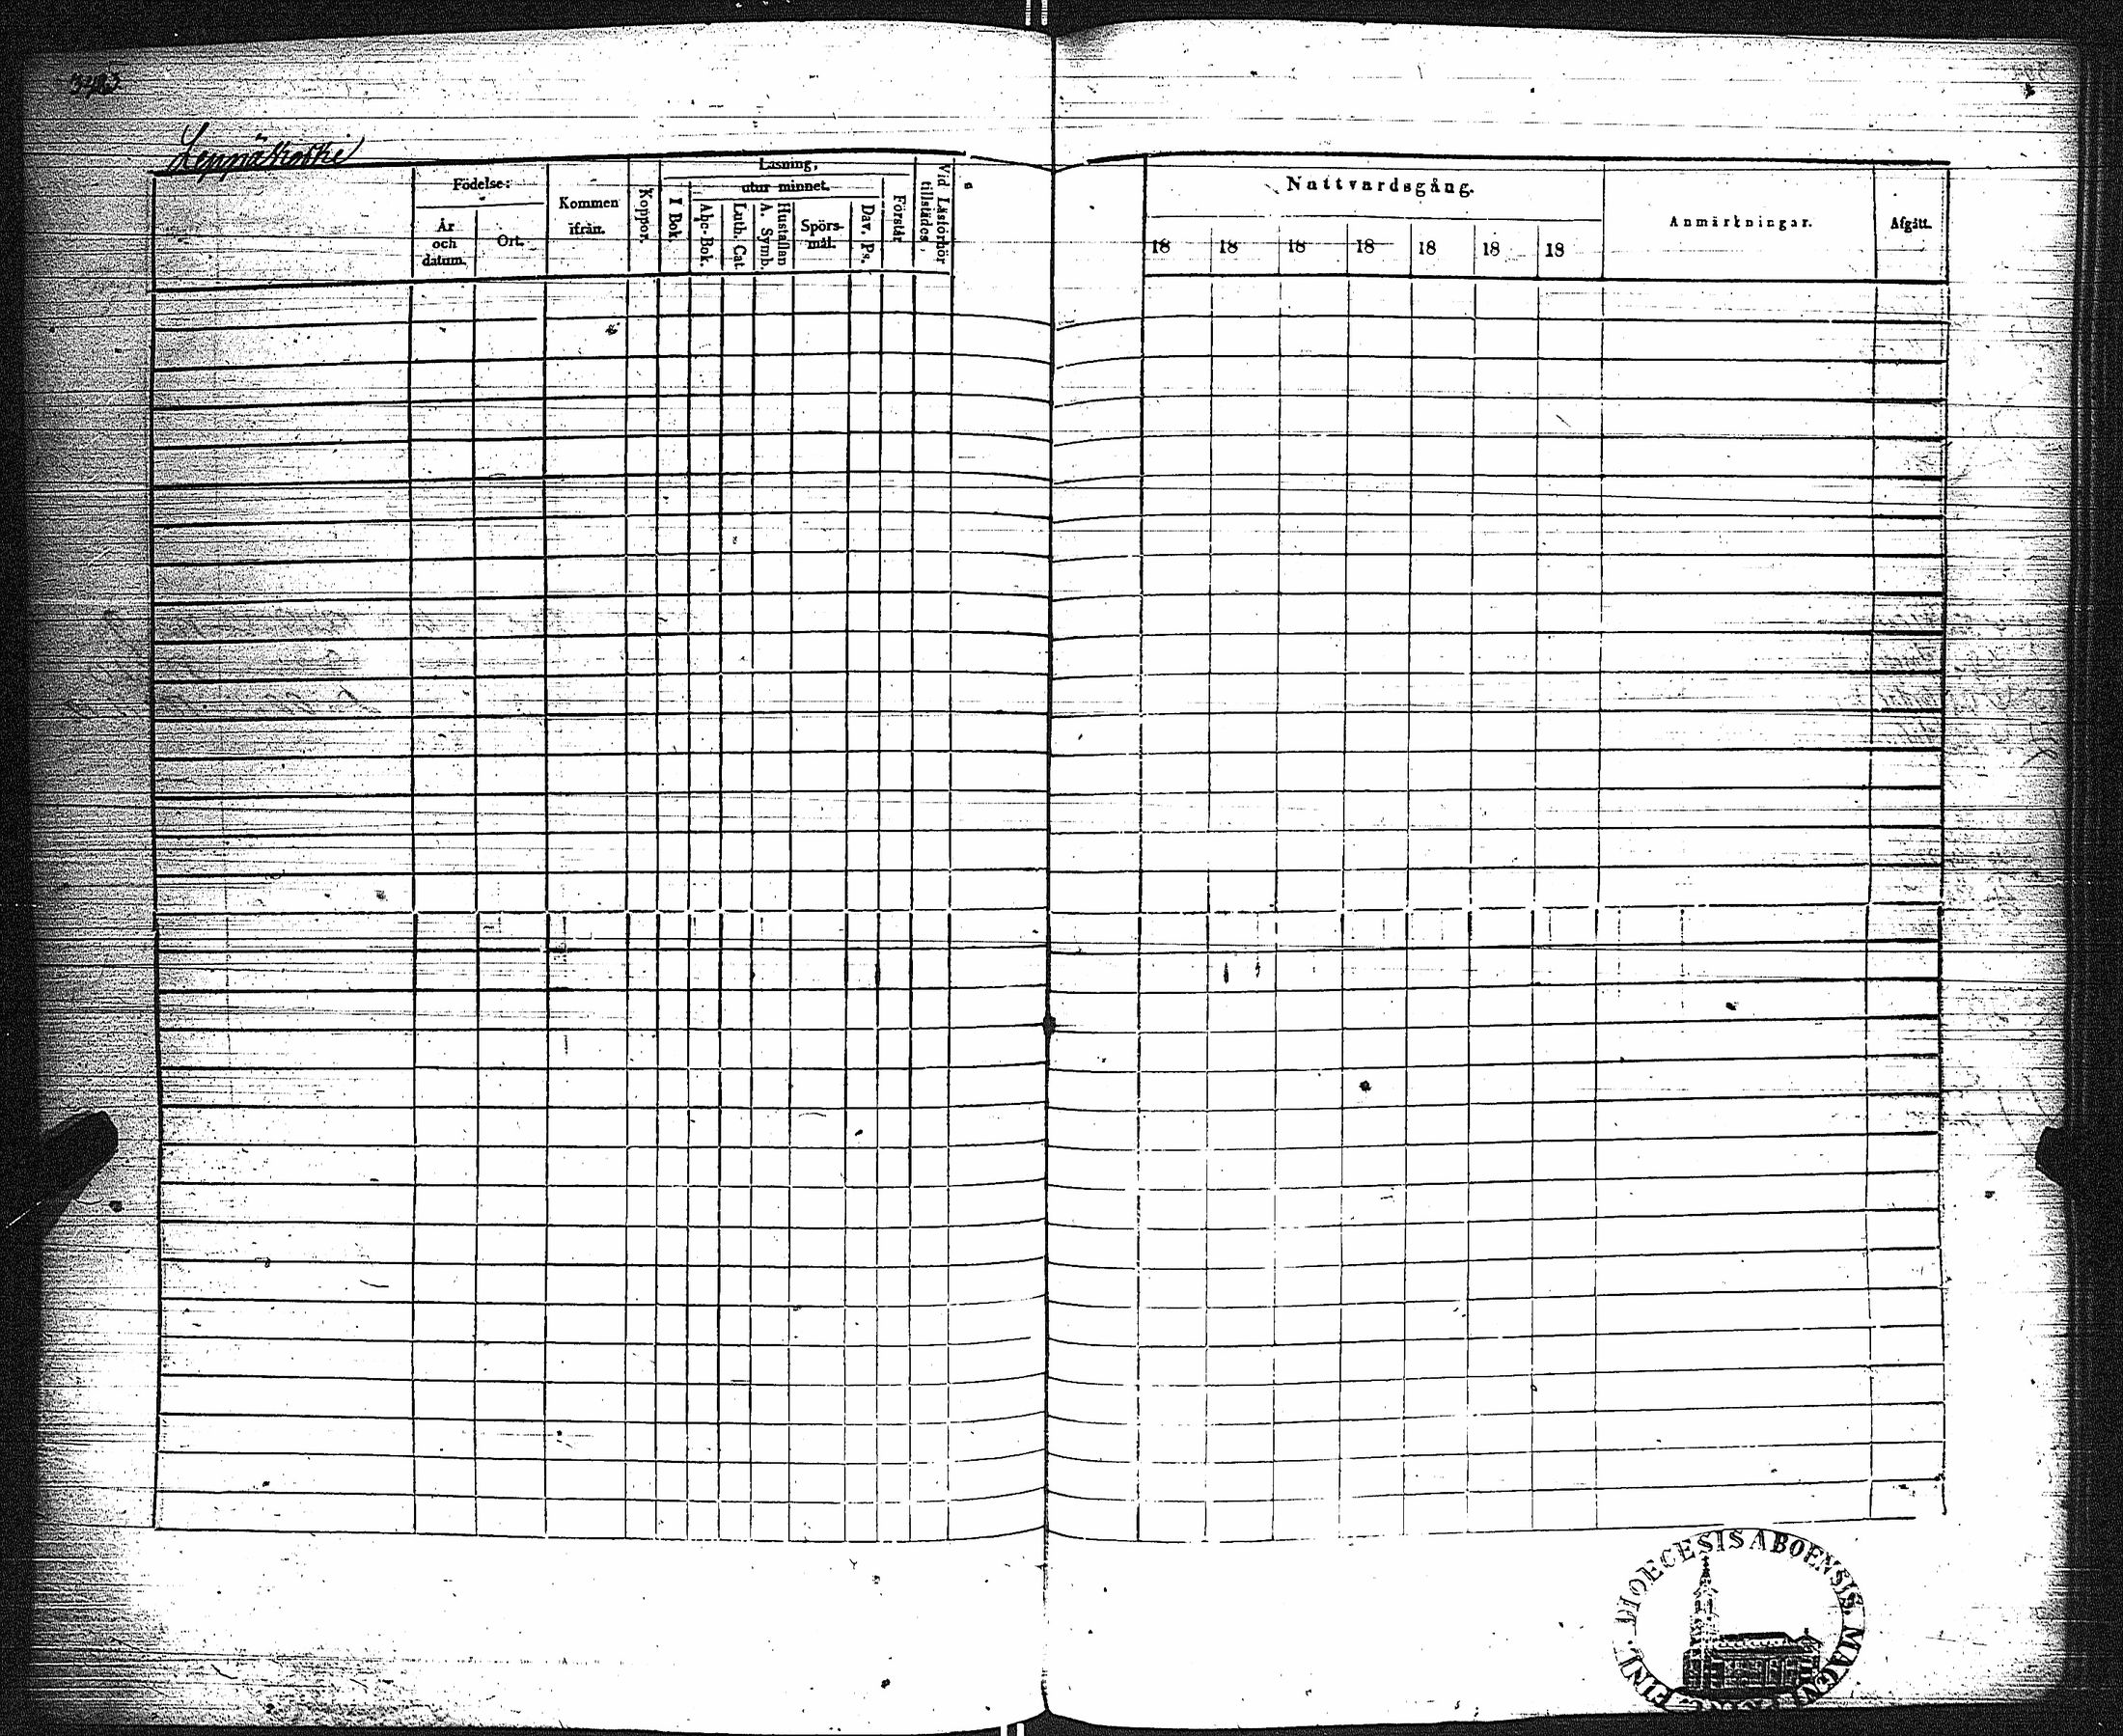 Leppäkoski
Födelse:
År och datum.
Ort.
Kommen ifrån.
Koppor.
Läsning,
utur minnet.
I Bok.
Abc-Bok.
Luth. Cat.
Hustaflan A. Symb.
Spörsmål.
Dav. Ps.
Förstår
Vid Läsförhör tillstädes.
Nattvardsgång.
18 18 18 18 18 18 18
Anmärkningar.
Afgått.
DIOECESIS ABOENSIS. MAGNI